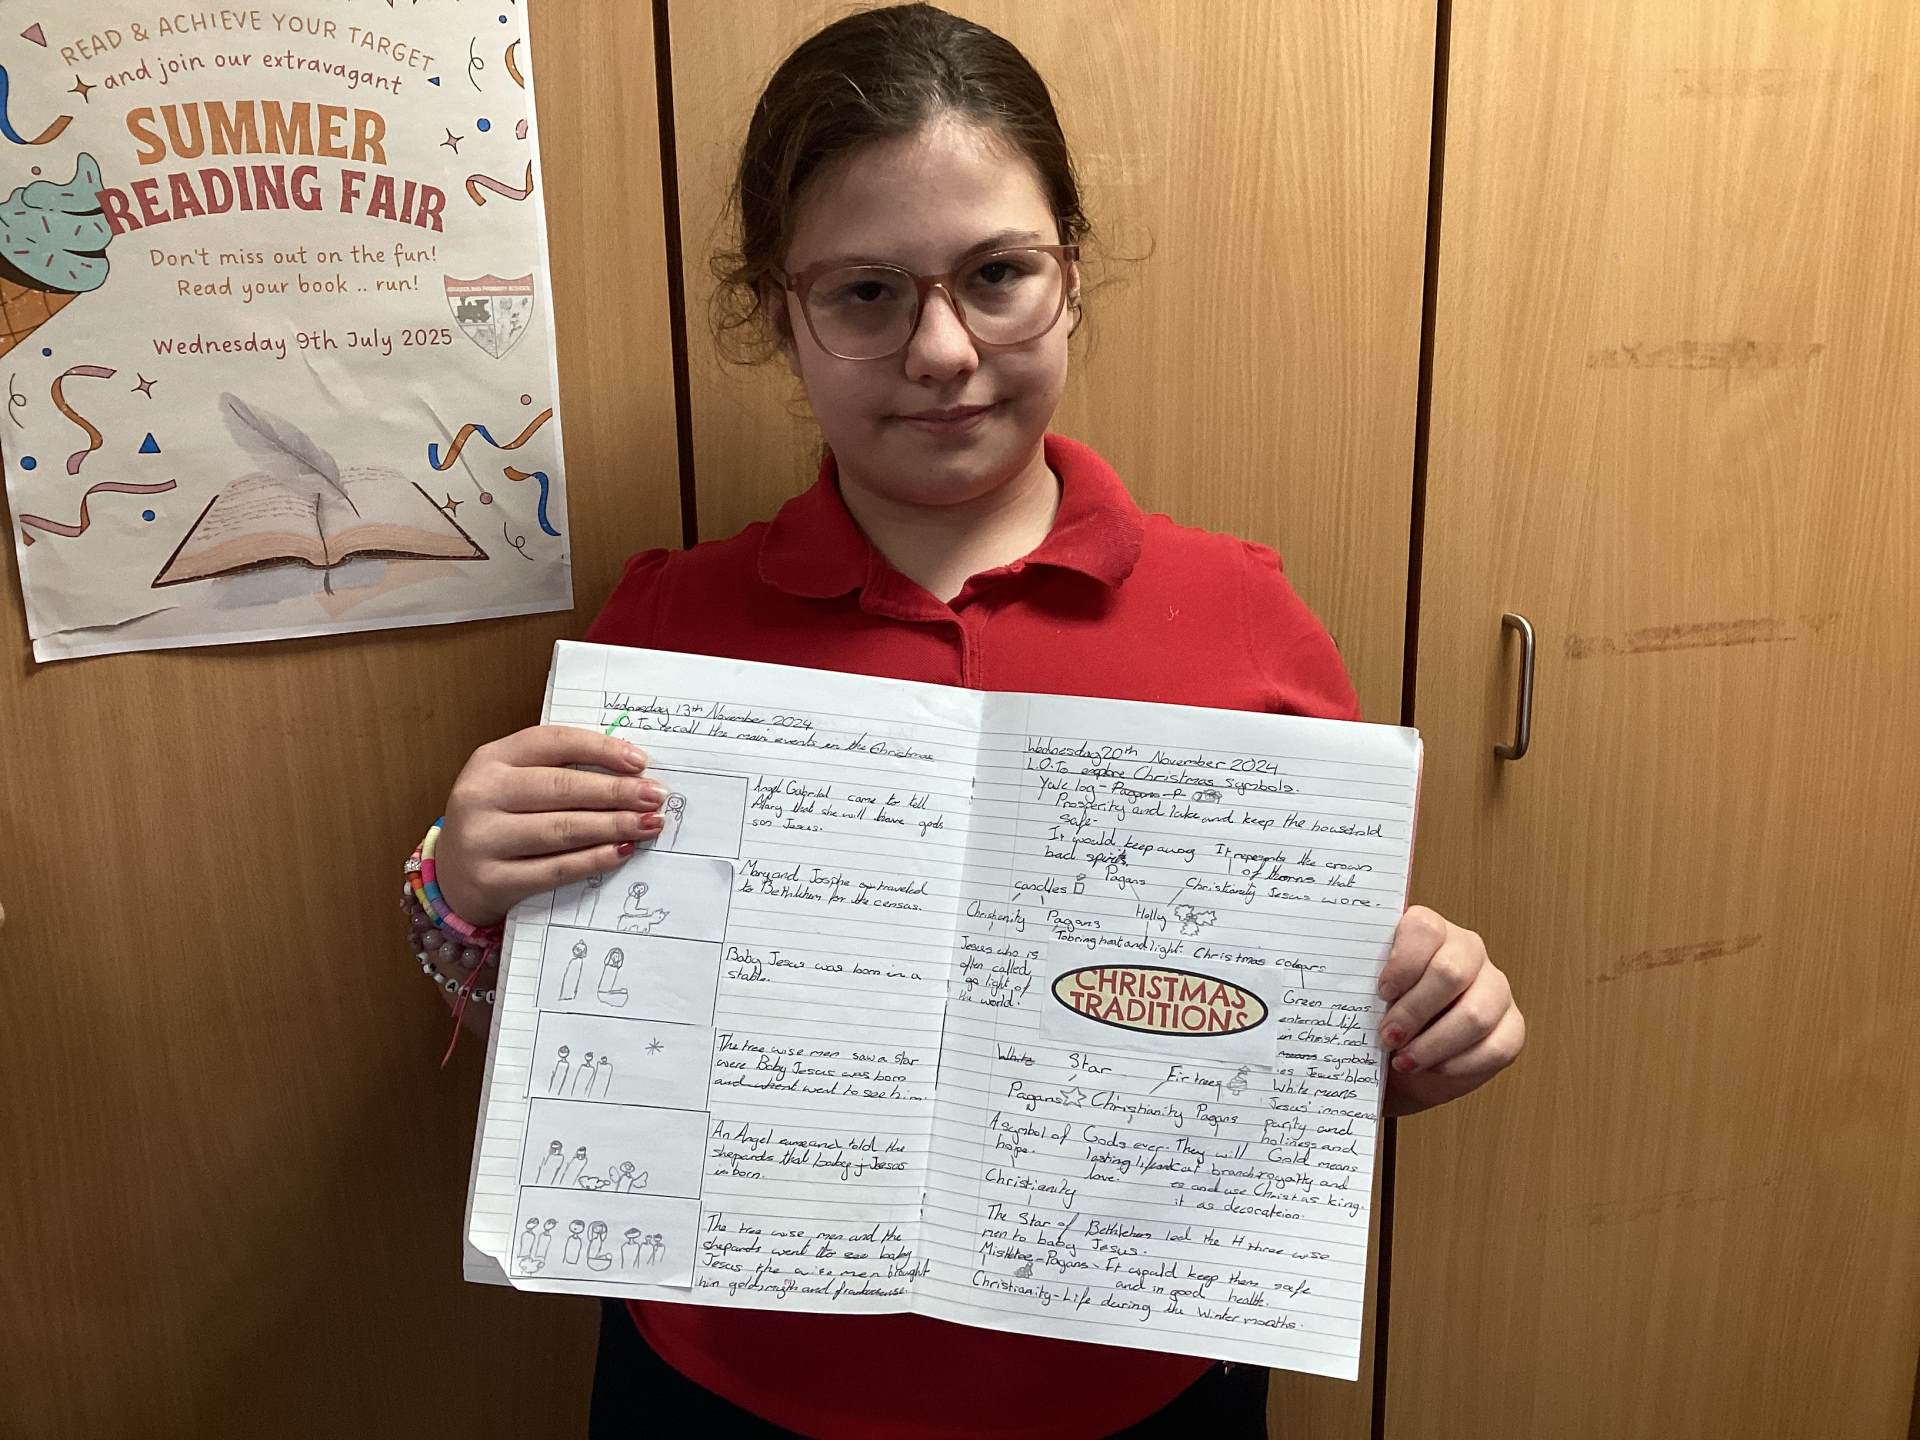 READ & ACHIEVE YOUR TARGET
and join our extravagant
SUMMER
READING FAIR
Don't miss out on the fun!
Read your book .. run!
Wednesday 9th July 2025
Wednesday 13th November 2024
L.O. To recall the main events in the Christmas
Angel Gabrital came to tell
Mary that she will have gods
son Jesus.
Mary and Josphe traveled
to Bethlehem for the censas.
Baby Jesus was born in a
stable.
The tree wise men saw a star
were Baby Jesus was born
and whent went to see him.
An Angel came and told the
shepards that baby j Jesus
is born.
The tree wise men and the
shepards went to see baby
Jesus the wise men brought
him gold, myth and frankensense.
Wednesday 20th November 2024
L.O. To explore Christmas symbols.
Yule log - Pagans -
Prosperity and luke and keep the household
safe-
It would keep away
bad spirits.
It repesents the crown
of thorns that
Jesus wore.
Pagans
Christianity
candles
Holly
Christianity
Pagans
To bring heat and light.
Christmas colours
Jesus who is
often called
light of
the world.
CHRISTMAS
TRADITIONS
Green means
enternal life
in Christ, red
means symbols
Jesus' blood,
White means
Jesus' innocence,
purity and
holiness and
Gold means
royalty and
Christ as king.
White
Star
Fir trees
Pagans
Christianity
Pagans
A symbol of
hope.
Gods ever
lasting life and
love.
They will
cut branch
es and use
it as decoration.
Christianity
The Star of Bethlehem led the H three wise
men to baby Jesus.
Mistletoe - Pagans - It would keep them safe
and in good health.
Christianity - Life during the Winter months.